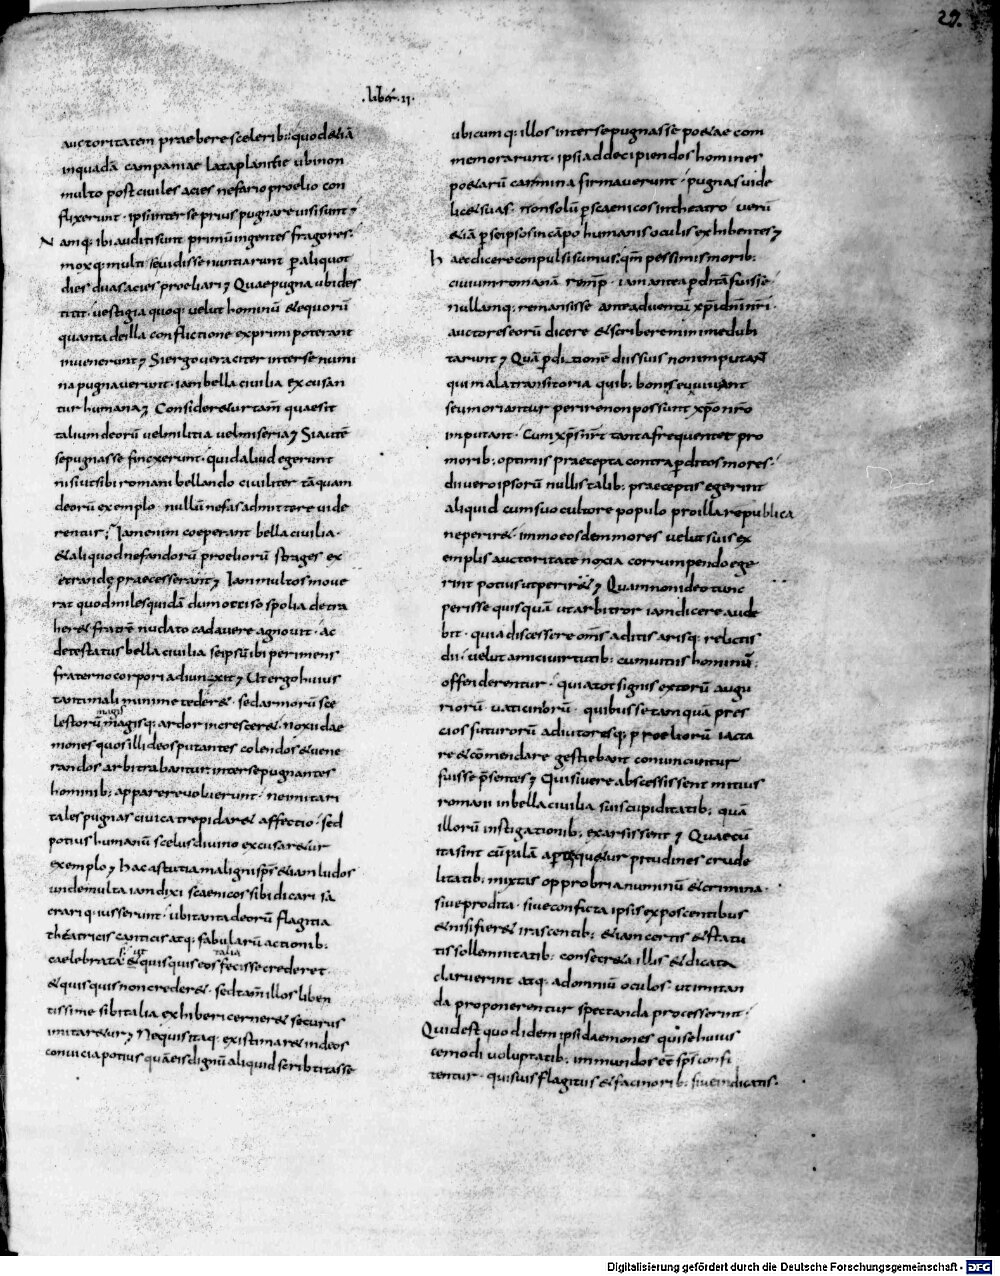 29.
.liber.ii.
auctoritatem praebere sceleribꝰ; quod & iā
in quadā campaniae lata planitie ubi non
multo post civiles acies nefario proelio con
flixerunt · ipsi inter se prius pugnare visi sunt ;
Namq; ibi auditi sunt primū ingentes fragores ·
moxq; multi se vidisse nuntiarunt p aliquot
dies duas acies proeliari ; Quae pugna ubi des
titit · vestigia quoq; velut hominū & equorū
quanta de illa conflictione exprimi poterant
invenerunt ; Si ergo veraciter inter se numi
na pugnaverunt · iam bella civilia excusan
tur humana ; Consideretur tam̄ quae sit
talium deorū vel militia vel miseria ; Si autē
se pugnasse finxerunt · quid aliud egerunt
nisi ut sibi romani bellando civiliter tāquam
deorū exemplo · nullū nefas admittere vide
rentur ; Iam enim coeperant bella civilia ·
& aliquod nefandorū proeliorū strages ex
ecrandę praecesserant ; Iam multos move
rat quod miles quidā dum occiso spolia detra
her& fratrē nudato cadavere agnovit · ac
detestatus bella civilia se ipsū ibi perimens
fraterno corpori adiunxit ; Ut ergo huius
tanti mali minime teder& · sed armorū sce
magis
lestorū magisq; ardor increscer& · noxii dae
mones quos illi deos putantes colendos & vene
randos arbitrabantur inter se pugnantes
hominib; apparere voluerunt · ne imitari
tales pugnas civica trepidar& affectio · sed
potius humanū scelus divino excusar&ur
exemplo ; Hac astutia maligni sps & iam ludos
unde multa iam dixi scaenicos sibi dicari sa
crariq; iusserunt · ubi tanta deorū flagitia
theatricis canticis atq; fabularū actionib;
talia
caelebrata & quisquis eos fecisse crederet
& quisquis non creder& · sed tam̄ illos liben
tissime sibi talia exhiberi cerner& securus
imitar&ur ; Ne quis itaq; existimar& in deos
convicia potius quā eis dignū aliquid scribtitasse
ubicumq; illos inter se pugnasse po&ae com
memorarunt · ipsi ad decipiendos homines
po&arū carmina firmaverunt · pugnas vide
lic& suas · non solū p scaenicos in theatro verū
&iā p se ipsos in cāpo humanis oculis exhibentes ;
haec dicere conpulsi sumus · qm̄ pessimis morib;
civium romanā rem̄p · iam antea pditā fuisse
nullamq; remansisse ante adventū xp̄i dn̄i n̄ri
auctores eorū dicere & scribere minime dubi
tarunt ; Quā pditione diis suis non imputant
qui mala transitoria quib; boni seu vivant
seu moriantur perire non possunt xp̄o nr̄o
imputant · Cum xp̄s nr̄ tanta frequentet pro
morib; optimis praecepta contra pditos mores ·
dii vero ipsorū nullis talib; praeceptis egerint
aliquid cum suo cultore populo pro illa republica
ne perir& · immo eosdem mores velut suis ex
emplis auctoritate noxia corrumpendo ege
rint potius ut perir& ; Quam non ideo tunc
perisse quisquā ut arbitror iam dicere aude
bit · quia discessere om̄s aditis arisq; relictis
dii · velut amici virtutib; cum vitiis hominū
offenderentur · quia tot signis extorū augu
riorū vaticiniorū · quibus se tamquā pres
cios futurorū adiutoresq; proeliorū iacta
re & cōmendare gestiebant convincuntur
fuisse p̄sentes ; Qui si vere abscessissent mitius
romani in bella civilia suis cupiditatib; quā
illorū instigationib; exarsissent ; Quae cū
ita sint cū palā apteq; &ur pitudines crude
litatib; mixtas opprobria numinū & crimina ·
sive prodita · sive conficta ipsis exposcentibus
& nisi fier& irascentib; &iam certis & statu
tis sollemnitatib; consecr&a illis & dicata
claruerint atq; ad omniū oculos ut imitan
da proponerentur spectanda processerint ·
Quid est quod idem ipsi daemones qui se huius
cemodi voluptatib; immundos eē sps confi
tentur · qui suis flagitiis & facinorib; sive indicatis ·
Digitalisierung gefördert durch die Deutsche Forschungsgemeinschaft - DFG